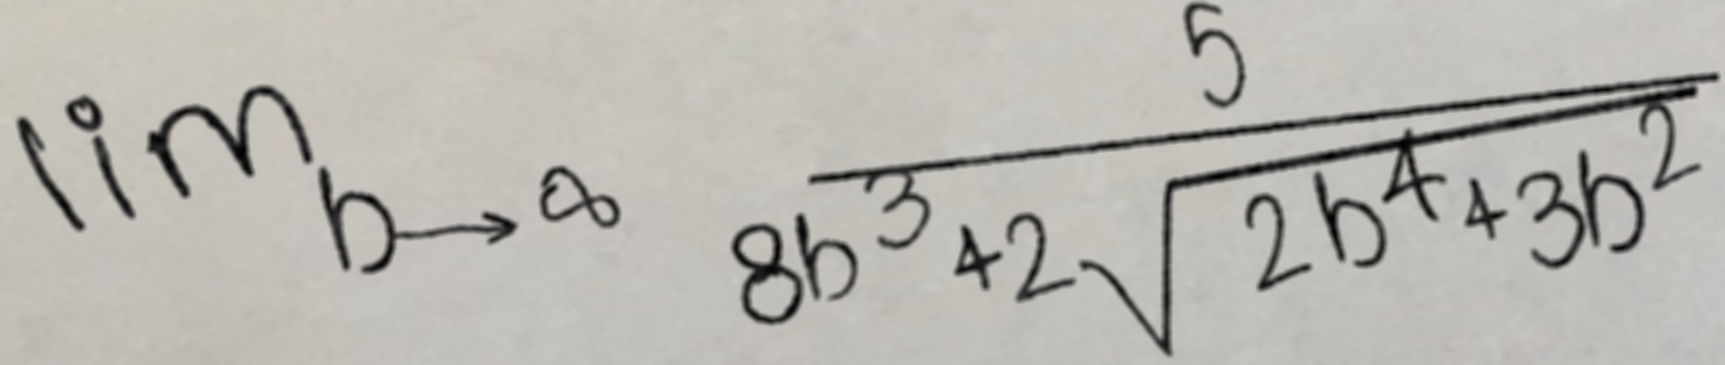 lim b→∞ 5 / 8b³+2√2b⁴+3b²